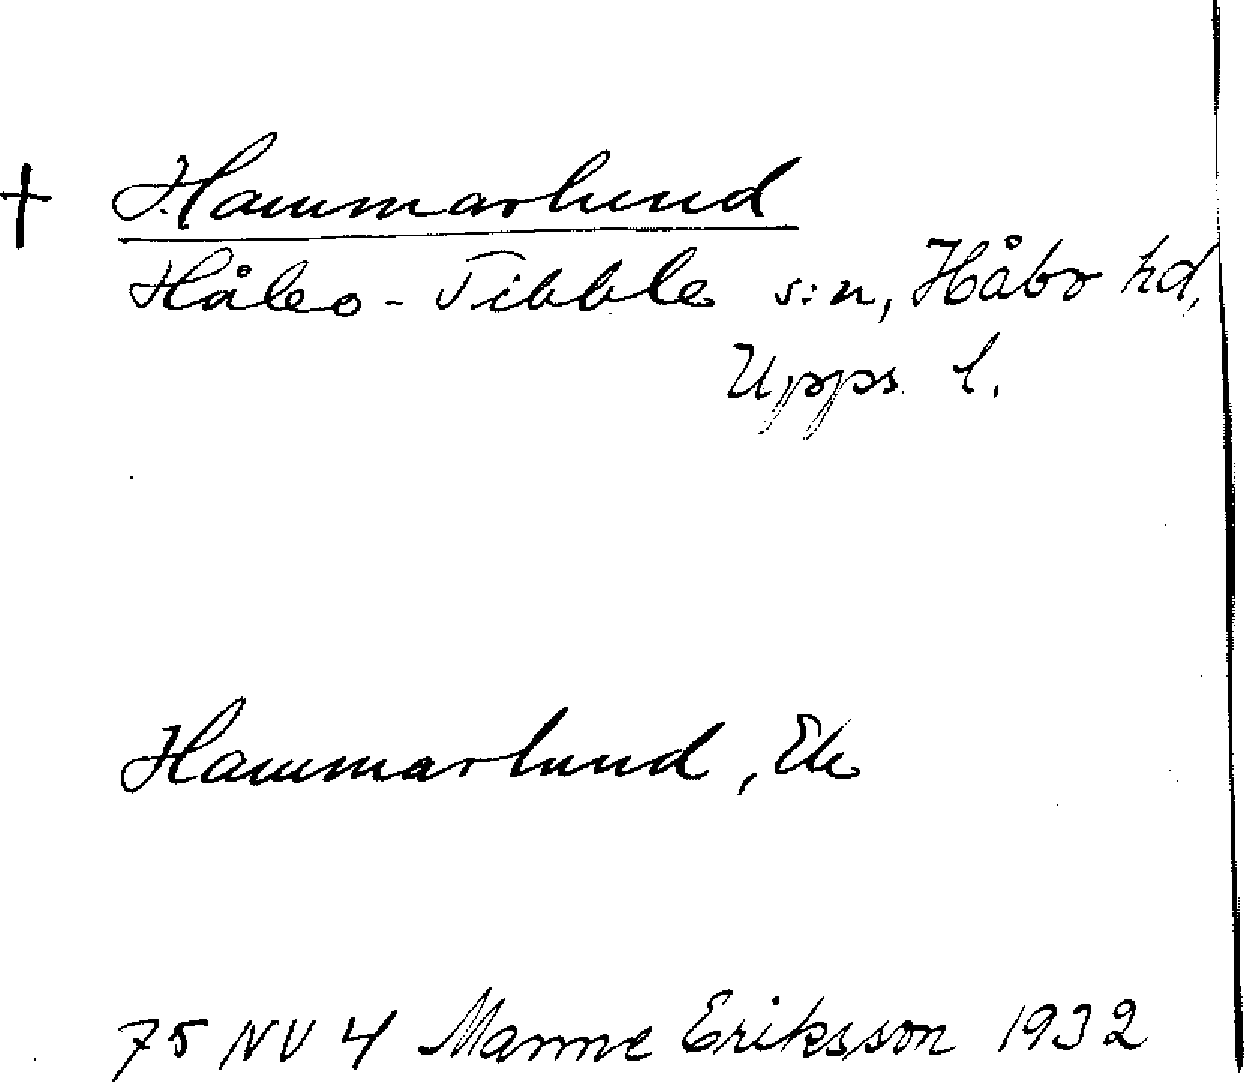 † Hammarlund
Håbo-Tibble s:n, Håbo hd,
Upps. l.
Hammarlund, Ek
75 NV 4 Manne Eriksson 1932